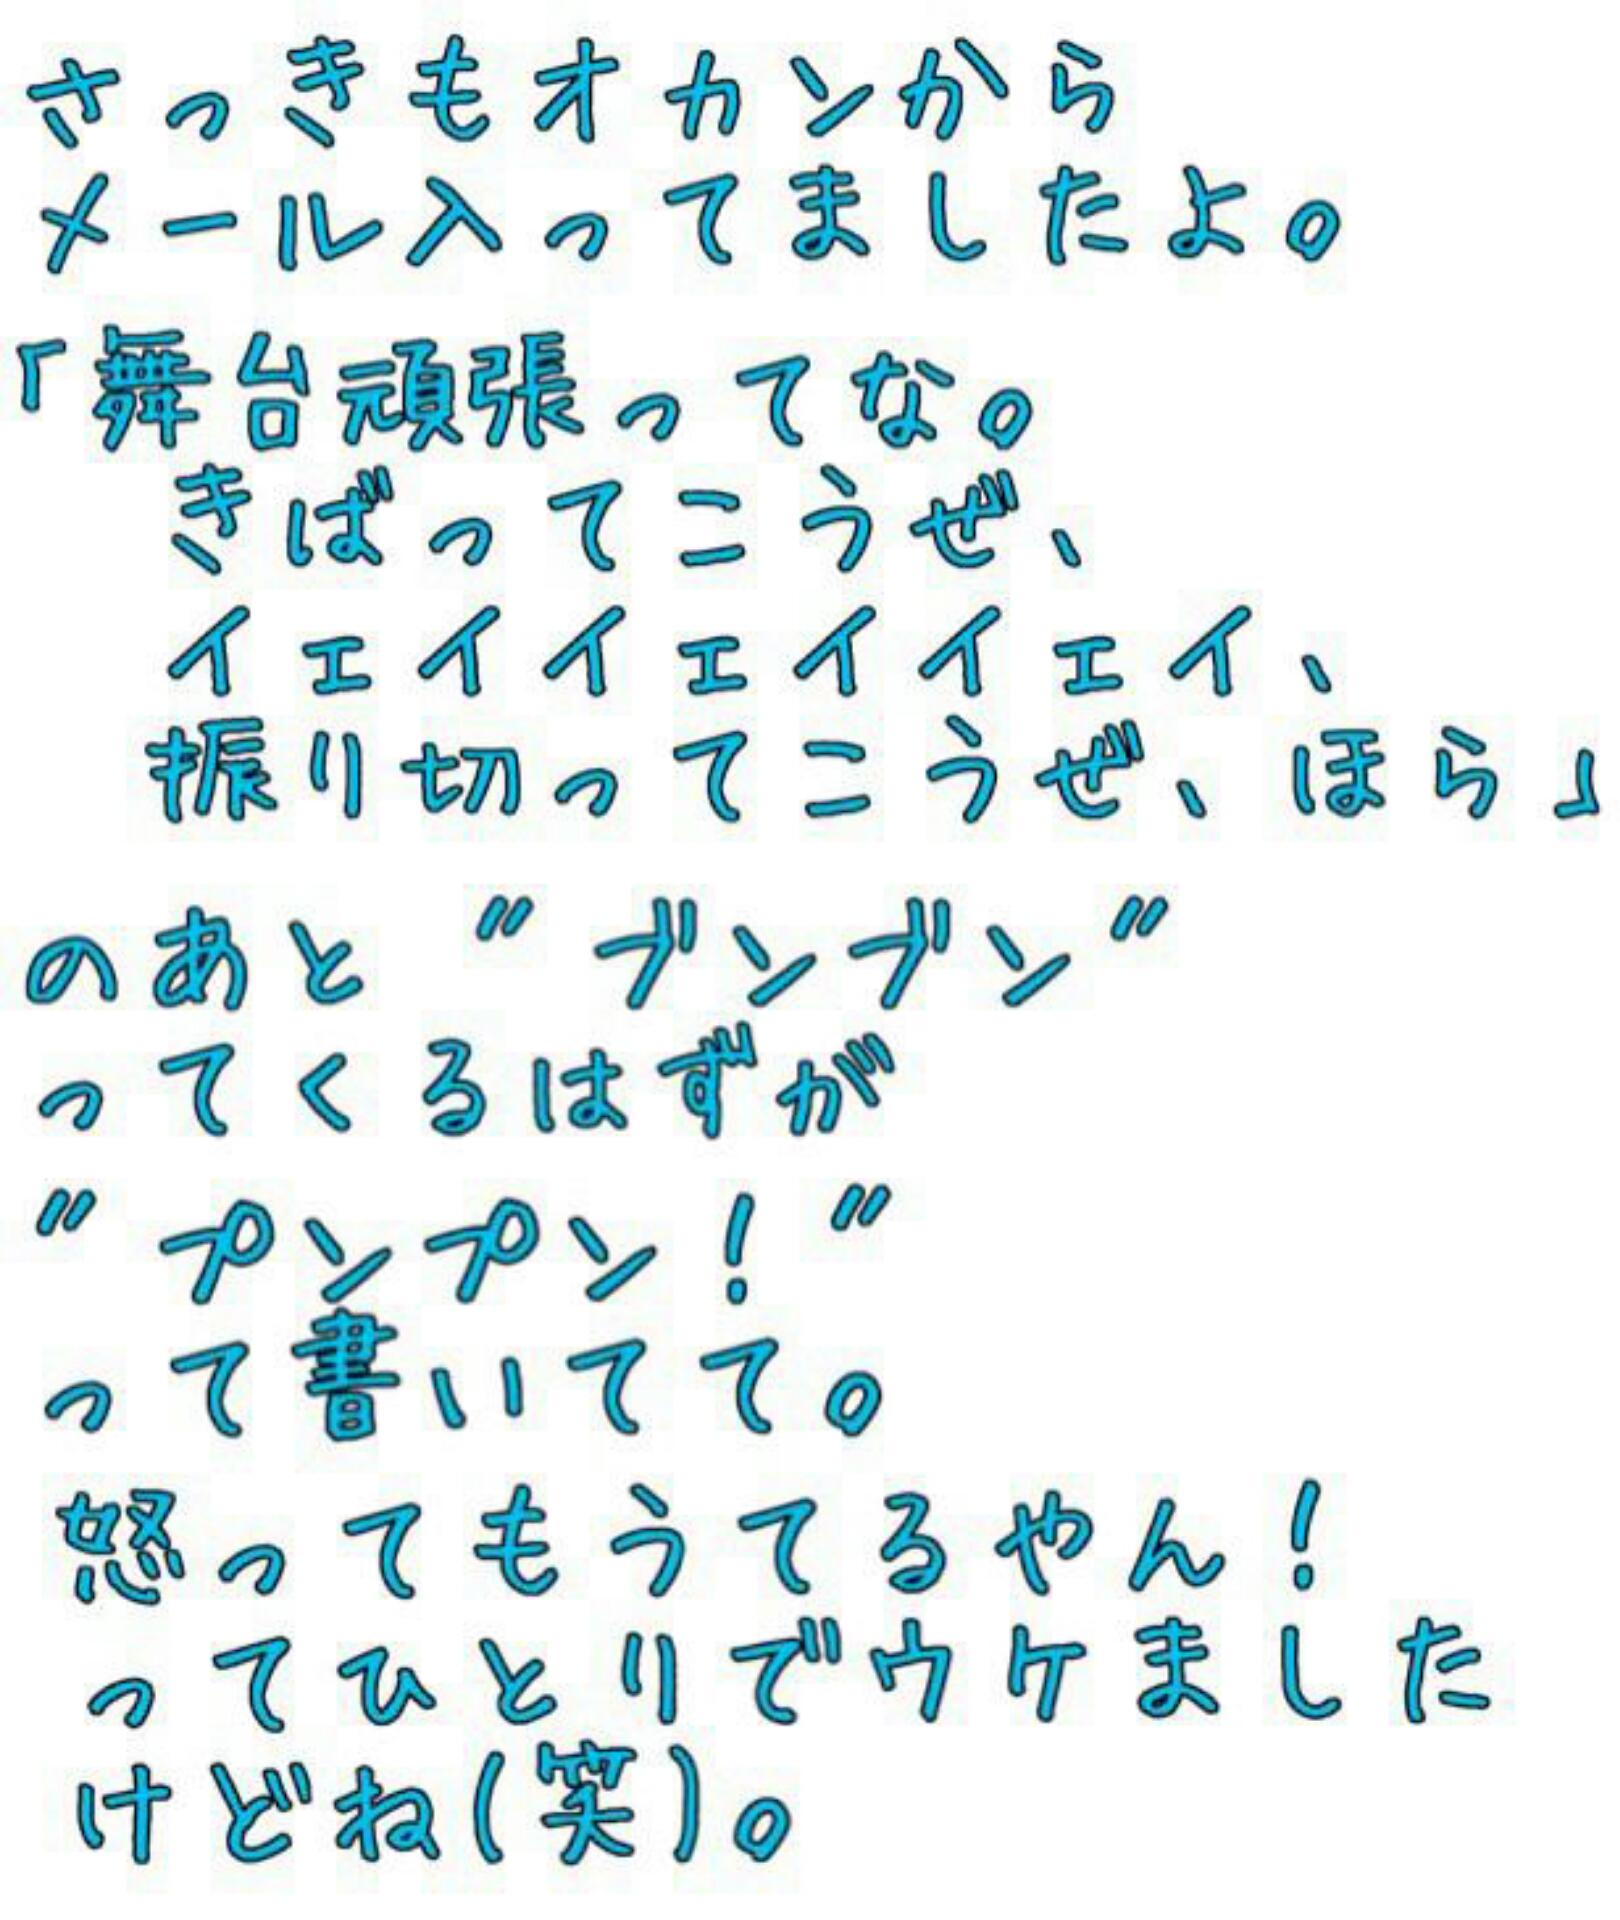 さっきもオカンから
メール入ってましたよ。
「舞台頑張ってな。
きばってこうぜ、
イェイイェイイェイ、
振り切ってこうぜ、ほら」
のあと〃ブンブン〃
ってくるはずが
〃プンプン!〃
って書いてて。
怒ってもうてるやん!
ってひとりでウケました
けどね(笑)。